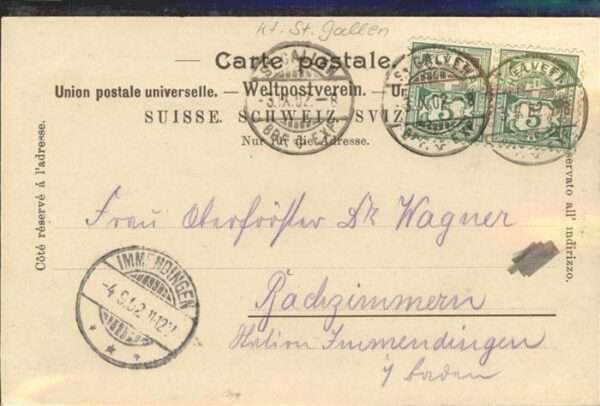 Kt. St. Gallen
Carte postale.
Union postale universelle. — Weltpostverein. — Un
SUISSE. SCHWEIZ. SVIZ
Nur für die Adresse.
Côté réservé à l'adresse.
servato all' indirizzo.
ST. GALLEN
-3.IX.02.-8
BRF. EXP.
5
5
Frau Oberförster Dr. Wagner
Bachzimmern
Station Immendingen
i/ Baden
IMMENDINGEN
-4.9.02.11-12V